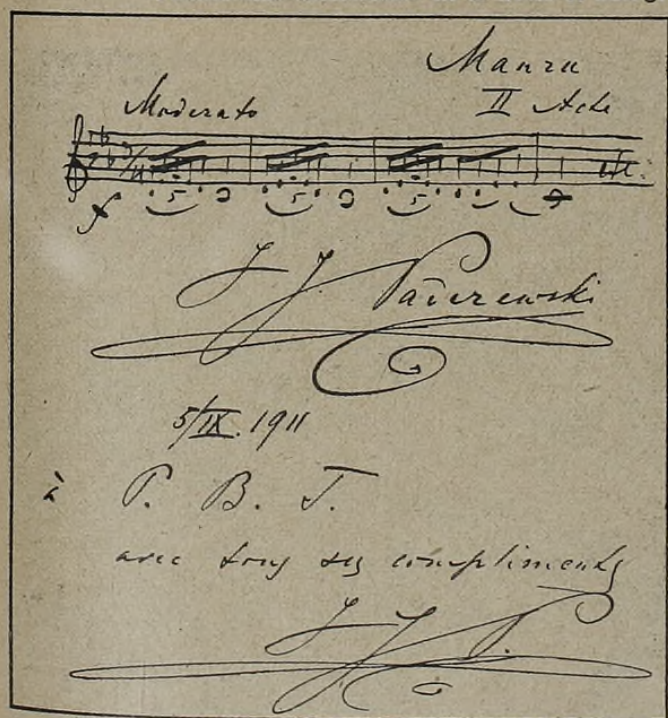 Manru
II Acte
Moderato
3/4
f 5 5 5 etc.
J J Paderewski
5/IX. 1911
à P. B. T.
avec tous ses compliments
J J P.